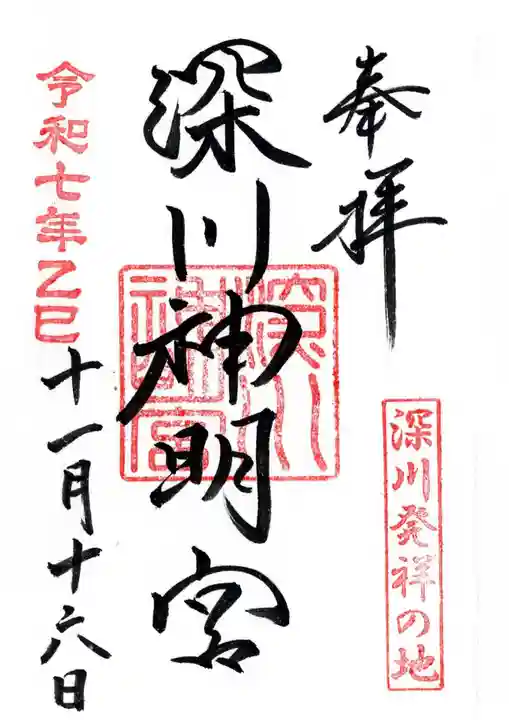 奉拝
深川発祥の地
深川神明宮
深川神明宮
令和七年乙巳
十一月十六日